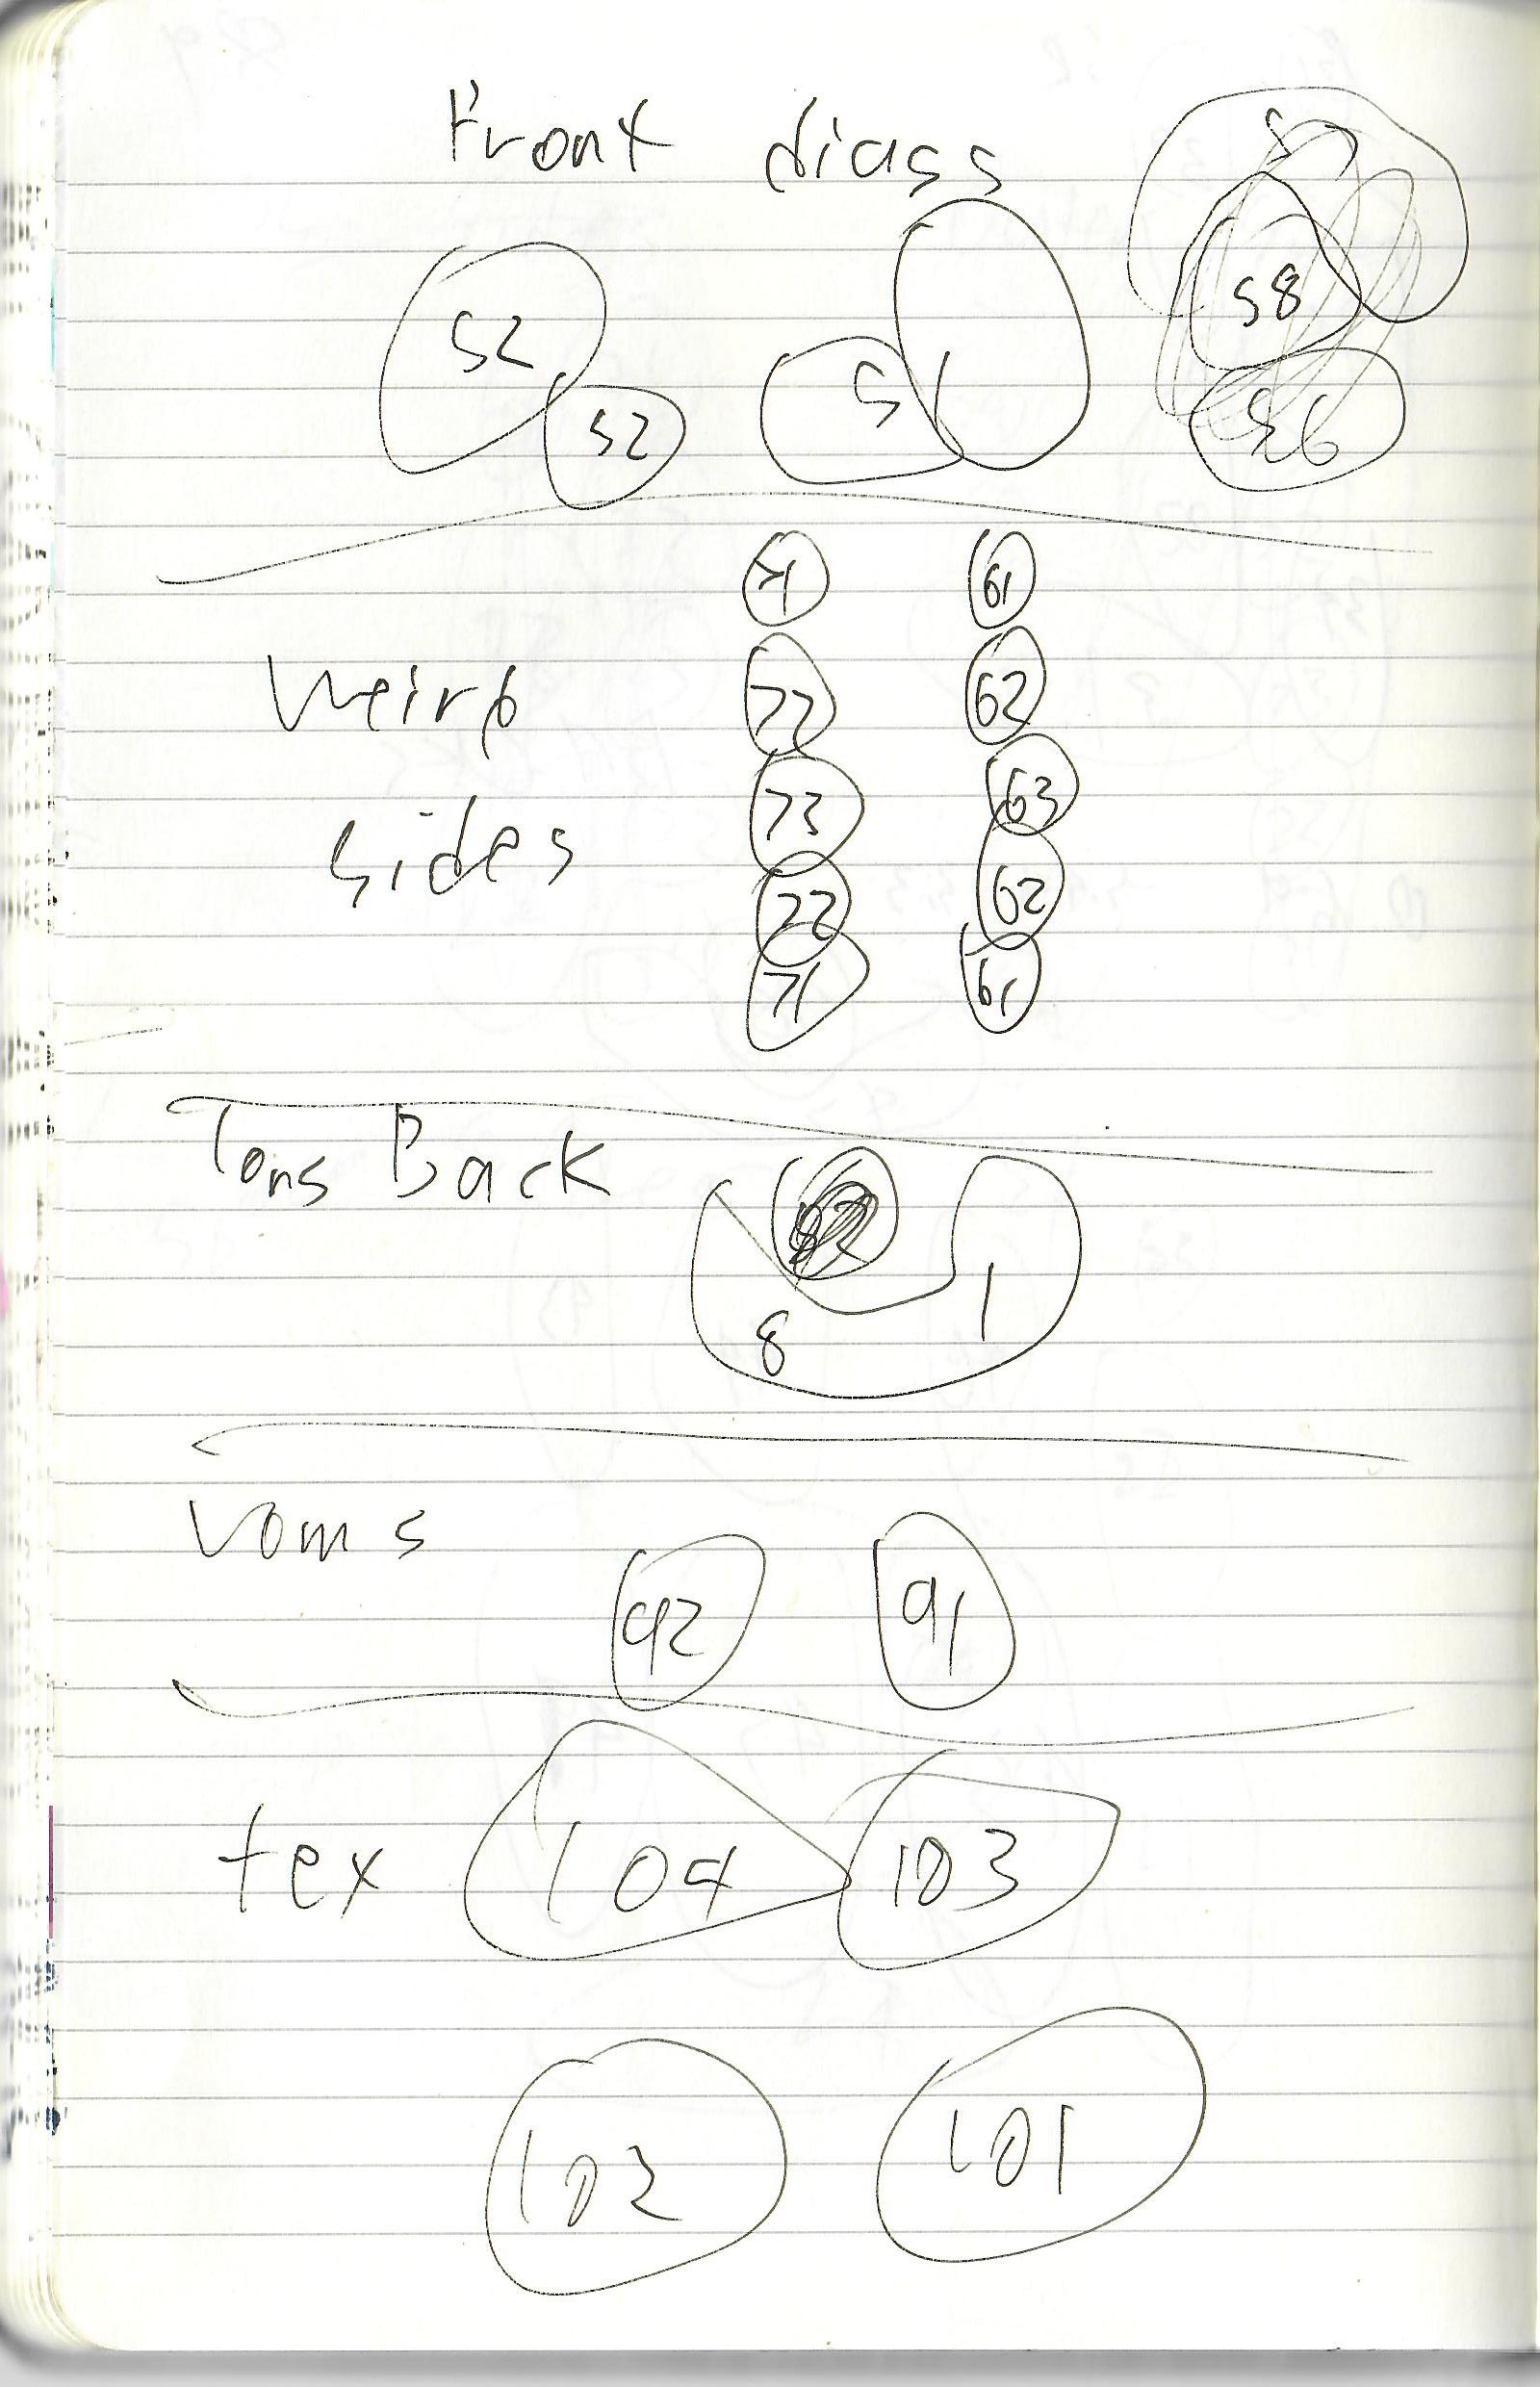 Front diags
57
58
52 52 51 56
71 61
72 62
Weird
73 63
sides
72 62
71 61
Tons Back
8 1
Voms
92 91
tex 104 103
102 101